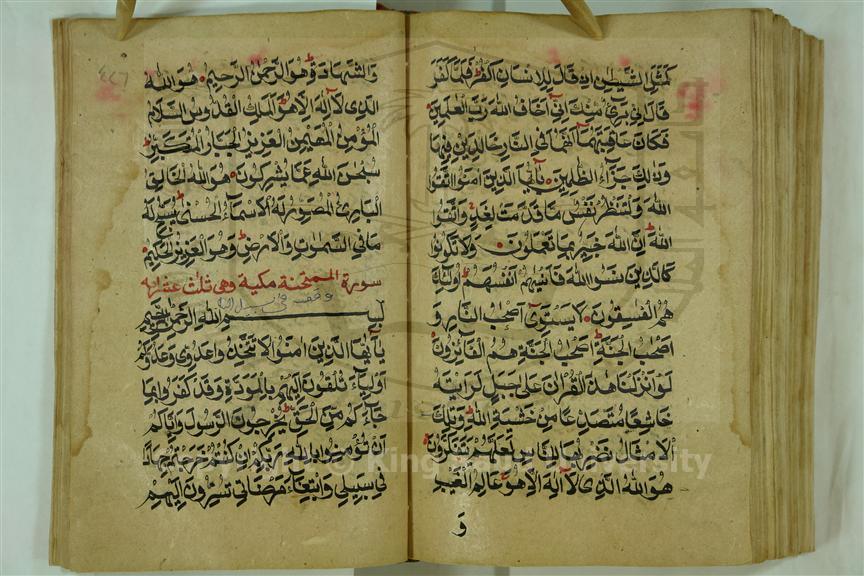 كَمَثَلِ الشَّيْطٰنِ اِذْ قَالَ لِلْاِنْسَانِ اكْفُرْ فَلَمَّا كَفَرَ
قَالَ اِنِّي بَرِيءٌ مِنْكَ اِنِّي اَخَافُ اللهَ رَبَّ الْعٰلَمِينَ
فَكَانَ عَاقِبَتَهُمَا اَنَّهُمَا فِي النَّارِ خَالِدَيْنِ فِيهَا
وَذٰلِكَ جَزَاءُ الظّٰلِمِينَ يَا اَيُّهَا الَّذِينَ اٰمَنُوا اتَّقُوا
اللهَ وَلْتَنْظُرْ نَفْسٌ مَا قَدَّمَتْ لِغَدٍ وَاتَّقُوا
اللهَ اِنَّ اللهَ خَبِيرٌ بِمَا تَعْمَلُونَ وَلَا تَكُونُوا
كَالَّذِينَ نَسُوا اللهَ فَاَنْسٰيهُمْ اَنْفُسَهُمْ اُولٰئِكَ
هُمُ الْفٰسِقُونَ لَا يَسْتَوِي اَصْحٰبُ النَّارِ وَ
اَصْحٰبُ الْجَنَّةِ اَصْحٰبُ الْجَنَّةِ هُمُ الْفَائِزُونَ
لَوْ اَنْزَلْنَا هٰذَا الْقُرْاٰنَ عَلٰى جَبَلٍ لَرَاَيْتَهُ
خَاشِعًا مُتَصَدِّعًا مِنْ خَشْيَةِ اللهِ وَتِلْكَ
الْاَمْثَالُ نَضْرِبُهَا لِلنَّاسِ لَعَلَّهُمْ يَتَفَكَّرُونَ
هُوَ اللهُ الَّذِي لَا اِلٰهَ اِلَّا هُوَ عَالِمُ الْغَيْبِ
وَ
٤٢٦
وَالشَّهَادَةِ هُوَ الرَّحْمٰنُ الرَّحِيمُ هُوَ اللهُ
الَّذِي لَا اِلٰهَ اِلَّا هُوَ الْمَلِكُ الْقُدُّوسُ السَّلَامُ
الْمُؤْمِنُ الْمُهَيْمِنُ الْعَزِيزُ الْجَبَّارُ الْمُتَكَبِّرُ
سُبْحٰنَ اللهِ عَمَّا يُشْرِكُونَ هُوَ اللهُ الْخَالِقُ
الْبَارِئُ الْمُصَوِّرُ لَهُ الْاَسْمَاءُ الْحُسْنٰى يُسَبِّحُ لَهُ
مَا فِي السَّمٰوٰتِ وَالْاَرْضِ وَهُوَ الْعَزِيزُ الْحَكِيمُ
سورة الممتحنة مكية وهي ثلاث عشر اية
وقف في سبيل الله
بِسْمِ اللهِ الرَّحْمٰنِ الرَّحِيمِ
يَا اَيُّهَا الَّذِينَ اٰمَنُوا لَا تَتَّخِذُوا عَدُوِّي وَعَدُوَّكُمْ
اَوْلِيَاءَ تُلْقُونَ اِلَيْهِمْ بِالْمَوَدَّةِ وَقَدْ كَفَرُوا بِمَا
جَاءَكُمْ مِنَ الْحَقِّ يُخْرِجُونَ الرَّسُولَ وَاِيَّاكُمْ
اَنْ تُؤْمِنُوا بِاللهِ رَبِّكُمْ اِنْ كُنْتُمْ خَرَجْتُمْ جِهَادًا
فِي سَبِيلِي وَابْتِغَاءَ مَرْضَاتِي تُسِرُّونَ اِلَيْهِمْ
© King Saud University